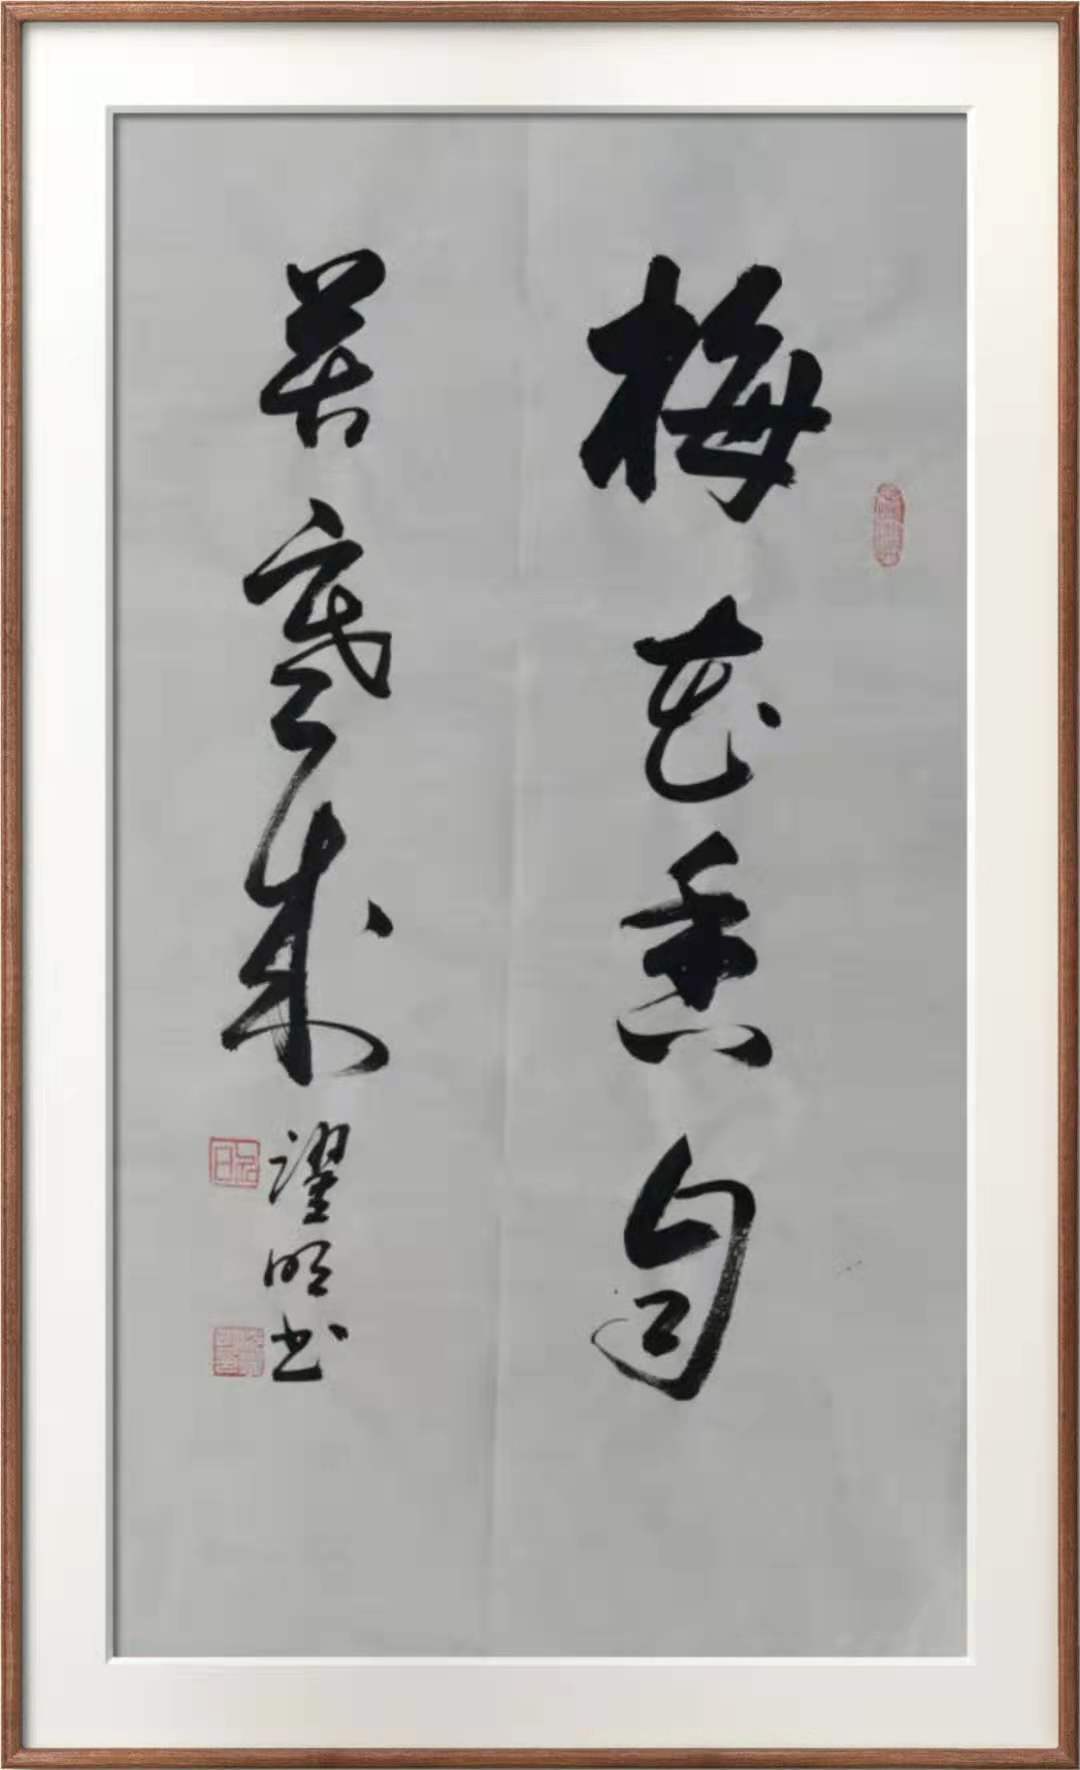 梅花香自
苦寒来
耀明书